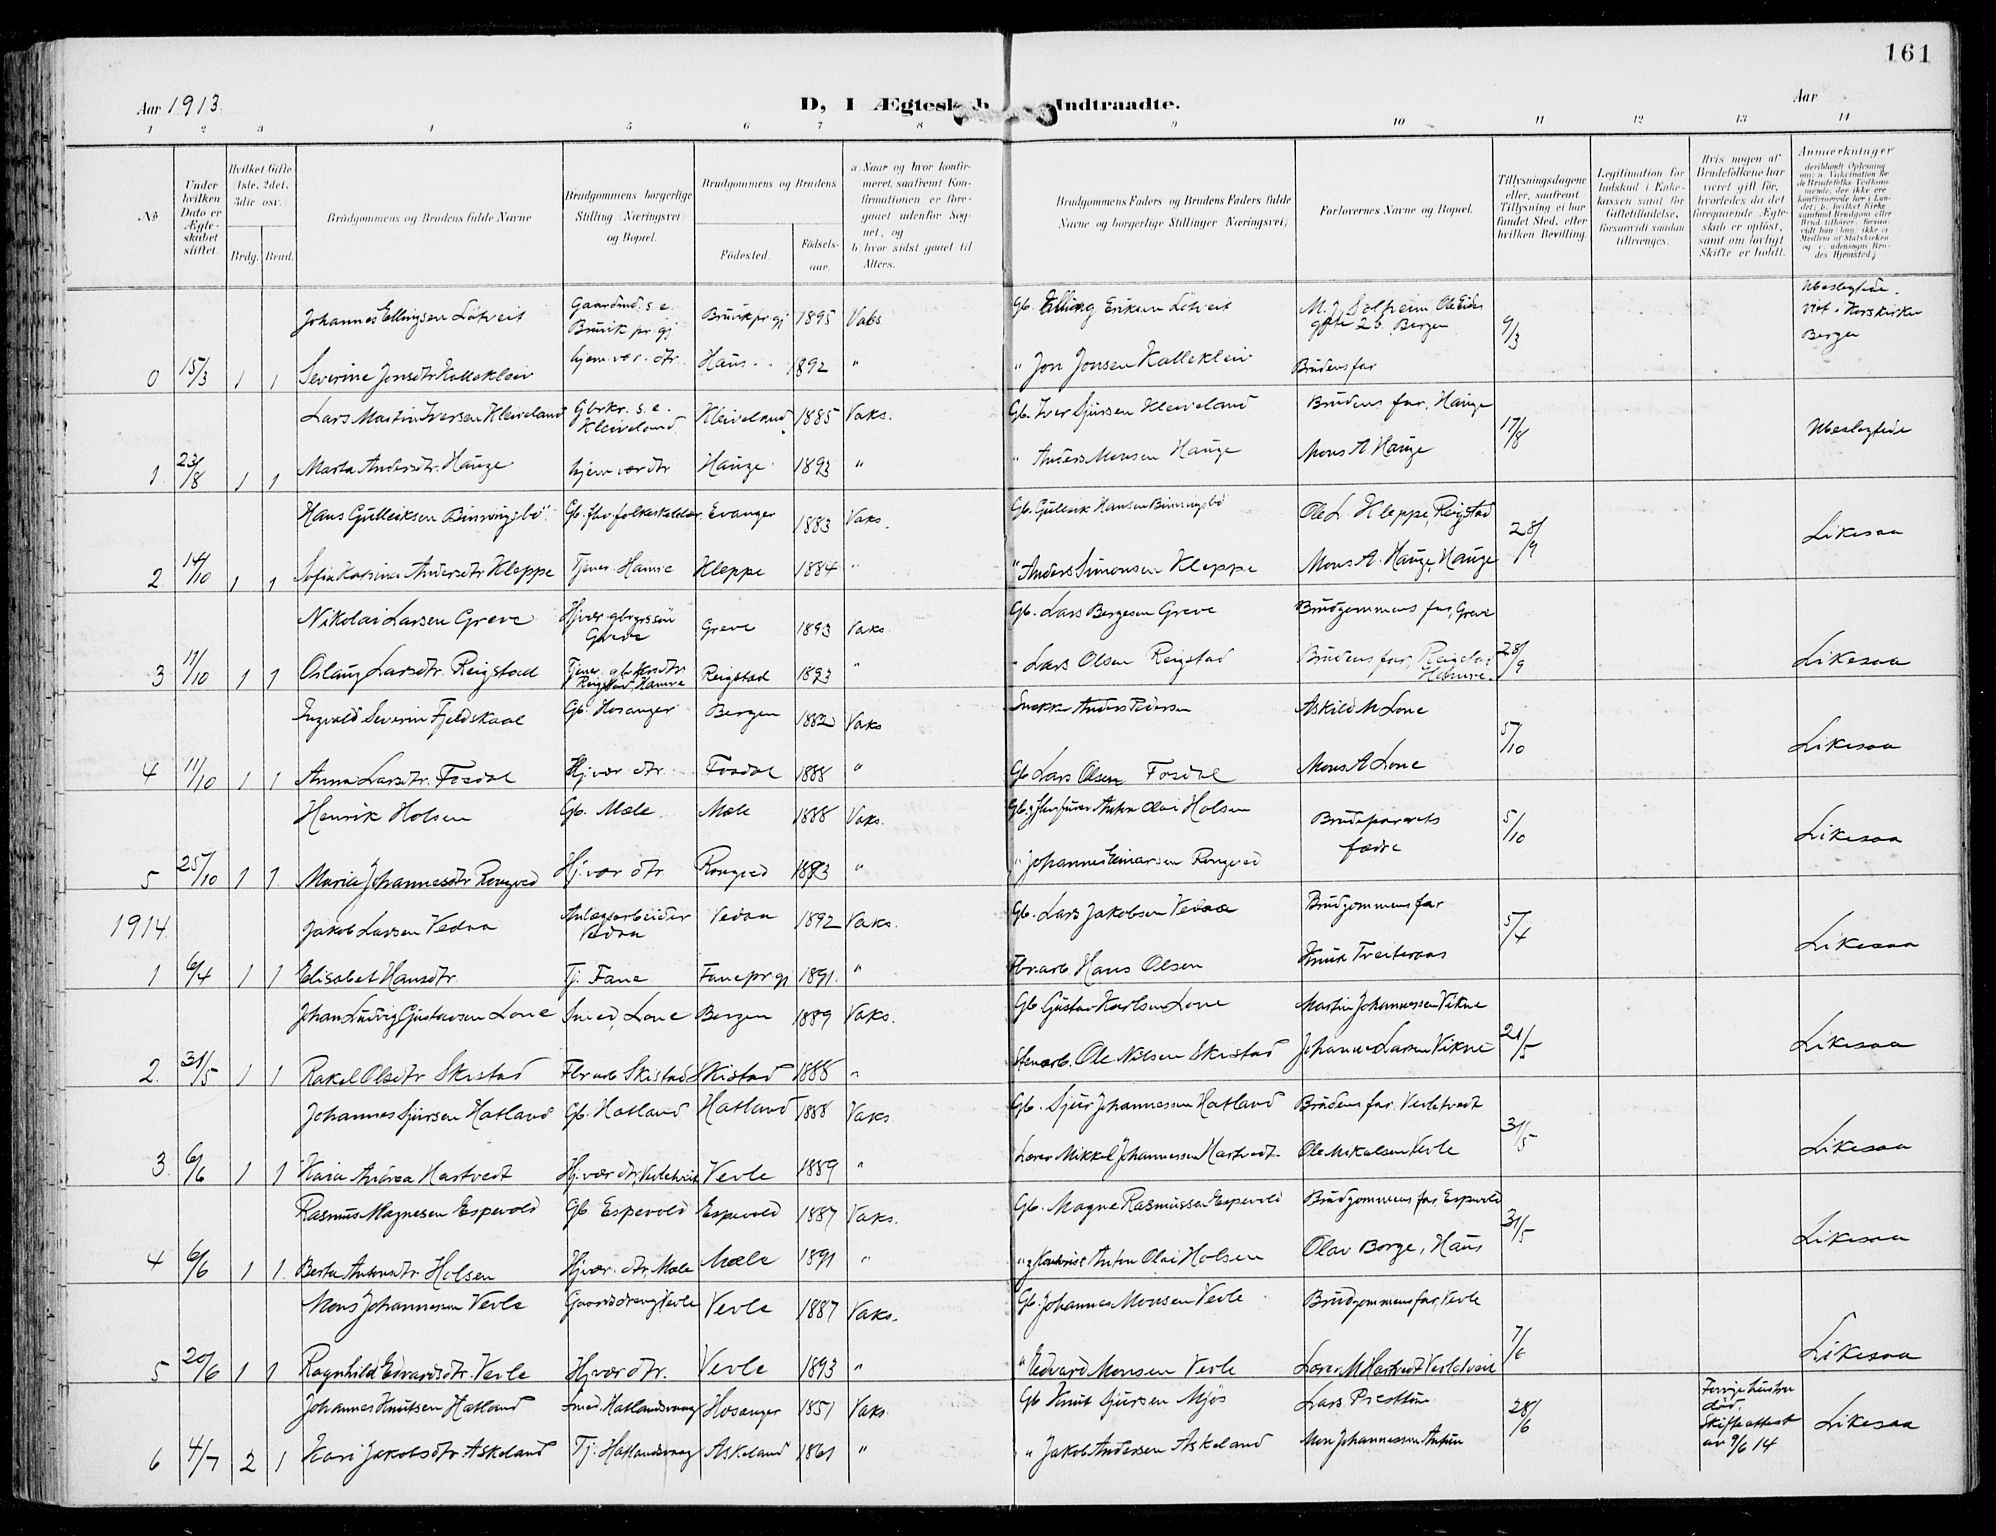 161
Aar 1913.
D, I Ægtesk b Indtraadte.
Aar
1 2 3 4 5 6 7 8 9 10 11 12 13 14
No
Under hvilken Dato er Ægteskabet stiftet.
Hvilket Gifte 1ste, 2det, 3die osv.
Brdg. Brud.
Brudgommens og Brudens fulde Navne
Brudgommens borgerlige Stilling Næringsvei og Bopæl.
Brudgommens og Brudens
Fødested. Fødselsaar.
a Naar og hvor konfirmeret, saafremt Konfirmationen er foregaaet udenfor Sognet, og b. hvor sidst gaaet til Alters.
Brudgommens Faders og Brudens Faders fulde Navne og borgerlige Stillinger Næringsvei,
Forlovernes Navne og Bopæl.
Tillysningsdagene eller, saafremt Tillysning ei har fundet Sted, efter hvilken Bevilling.
Legitimation for Indskud i Enkekassen samt for Giftetilladelse, forsaavidt saadan tiltrænges.
Hvis nogen af Brudefolkene har været gift før, hvorledes da det foregaaende Ægteskab er opløst, samt om lovligt Skifte er holdt.
Anmærkninger
Johannes Ellingsen Lötveit Gaardmd. s. e. Bruvik pr. gj Bruvik pr gj 1895 Vaks Gb. Elling Eriksen Lötveit M. J. Solheim, Ole Eides gate 26, Bergen 9/3 Ubeslegtede. Viet i Korskirken Bergen
0 15/3 1 1 Severine Jonsdtr Kalleklein hjem. vær. dtr. Haus 1892 " " Jon Jonsen Kalleklein Brudens far
Lars Martin Iversen Kleiveland Gbrkr. s. e. Kleiveland Kleiveland 1885 Vaks. Gb. Iver Sjursen Kleiveland Brudens far, Hauge 17/8 Ubeslegtede
1. 23/8 1 1 Marta Andersdtr. Hauge hjem vær dtr Hauge 1893 " " Anders Monsen Hauge Mons A Hauge
Hans Gulleiksen Binningsbö Gb. fhv folkeskolelær. Evanger 1883 Vaks. Gb. Gulleik Hansen Binningsbö Ole L. Kleppe, Reigstad 28/9 Likesaa
2 14/10 1 1 Sofia Katrina Andersdtr Kleppe Tjener Hamre Kleppe 1884 " " Anders Simonsen Kleppe Mons A. Hauge, Hauge
Nikolai Larsen Greve Hjvær gbrgrssön Greve Greve 1893 Vaks. Gb. Lars Bergesen Greve Brudgommens far, Greve
3 11/10 1 1 Oslaug Larsdtr. Reigstad Reigstad 1893 " " Lars Olsen Reigstad Brudens far, Reigstad Hamre. 28/9 Likesaa
Ingvald Severin Fjeldskaal Gb. Hosanger Bergen 1882 Vaks Snekker Anders Askild M Lone 5/10 Likesaa
4 11/10 1 1 Anna Larsdtr. Fosdal Hj. vær. dtr. Fosdal 1888 " Gb Lars Olsen Fosdal Mons A Lone
Henrik Holsen Gb. Mæle. Mæle 1888 Vaks. Anton Olai Holsen Brudeparrets fædre 5/10 Likesaa
5 25/10 1 1 Maria Johannesdtr Rongved Hj. vær dtr Rongved 1893 " " Johannes Einarsen Rongved
1914. Jakob Larsen Vedaa Anlægsarbeider Vedaa Vedaa 1892 Vaks. Gb. Lars Jakobsen Vedaa Brudgommens far 5/4 Likesaa
1 6/4 1 1 Elisabet Hansdtr. Tj. Fane Fane pr gj 1891. " Fbr.arb. Hans Olsen Knut Treiteraas
Johan Ludvig Gustavsen Lone Smed, Lone Bergen 1889 Vaks. Gb Gustav Karlsen Lone Martin Johannessen Vikne 21/5 Likesaa
2. 31/5 1 1 Rakel Olsdtr Skistad Fbr arb Skistad Skistad 1888 " Stenarb. Ole Nilsen Skistad Johannes Larsen Vikne
Johannes Sjursen Hatland Gb. Hatland Hatland 1888 Vaks Gb. Sjur Johannessen Hatland Brudens far. Verletvedt 31/5 Likesaa
3. 6/6 1 1 Kaia Andrea Hartvedt Hj. vær dtr, Verletveit Vevle 1889 " Lærer Mikkel Johannessen Hartvedt Ole Mikalsen Vevle
Rasmus Magnesen Espevold Gb Espevold Espevold 1887 Vaks. Gb. Magne Rasmussen Espevold Brudgommens far, Espevold 31/5 Likesaa
4 6/6 1 1. Berta Antonsdtr Holsen Hj vær. dtr. Mæle Mæle 1891 " Anton Olai Holsen Olav Borge, Haus
Mons Johannessen Vevle Gaardsdreng Vevle Vevle 1887 Vaks. Gb. Johannes Monsen Vevle Brudgommens far, Vevle 7/6 Likesaa
5 20/6 1 1 Ragnhild Edvardsdtr. Vevle Hj vær dtr. Vevle 1893 " " Edvard Monsen Vevle Lærer M Hartvedt Verletveit
Johannes Knutsen Hatland Smed. Hatlandsvaag Hosanger 1851 Vaks. Gb Knut Sjursen Mjös Lars Presttun 28/6 Forrige hustru död. Skifteattest av 9/6 14 Likesaa
6 4/7 2 1 Kari Jakobsdtr. Askeland Tj. Hatlandsvaag Askeland 1861 " " Jakob Andersen Askeland Mon Johannessen